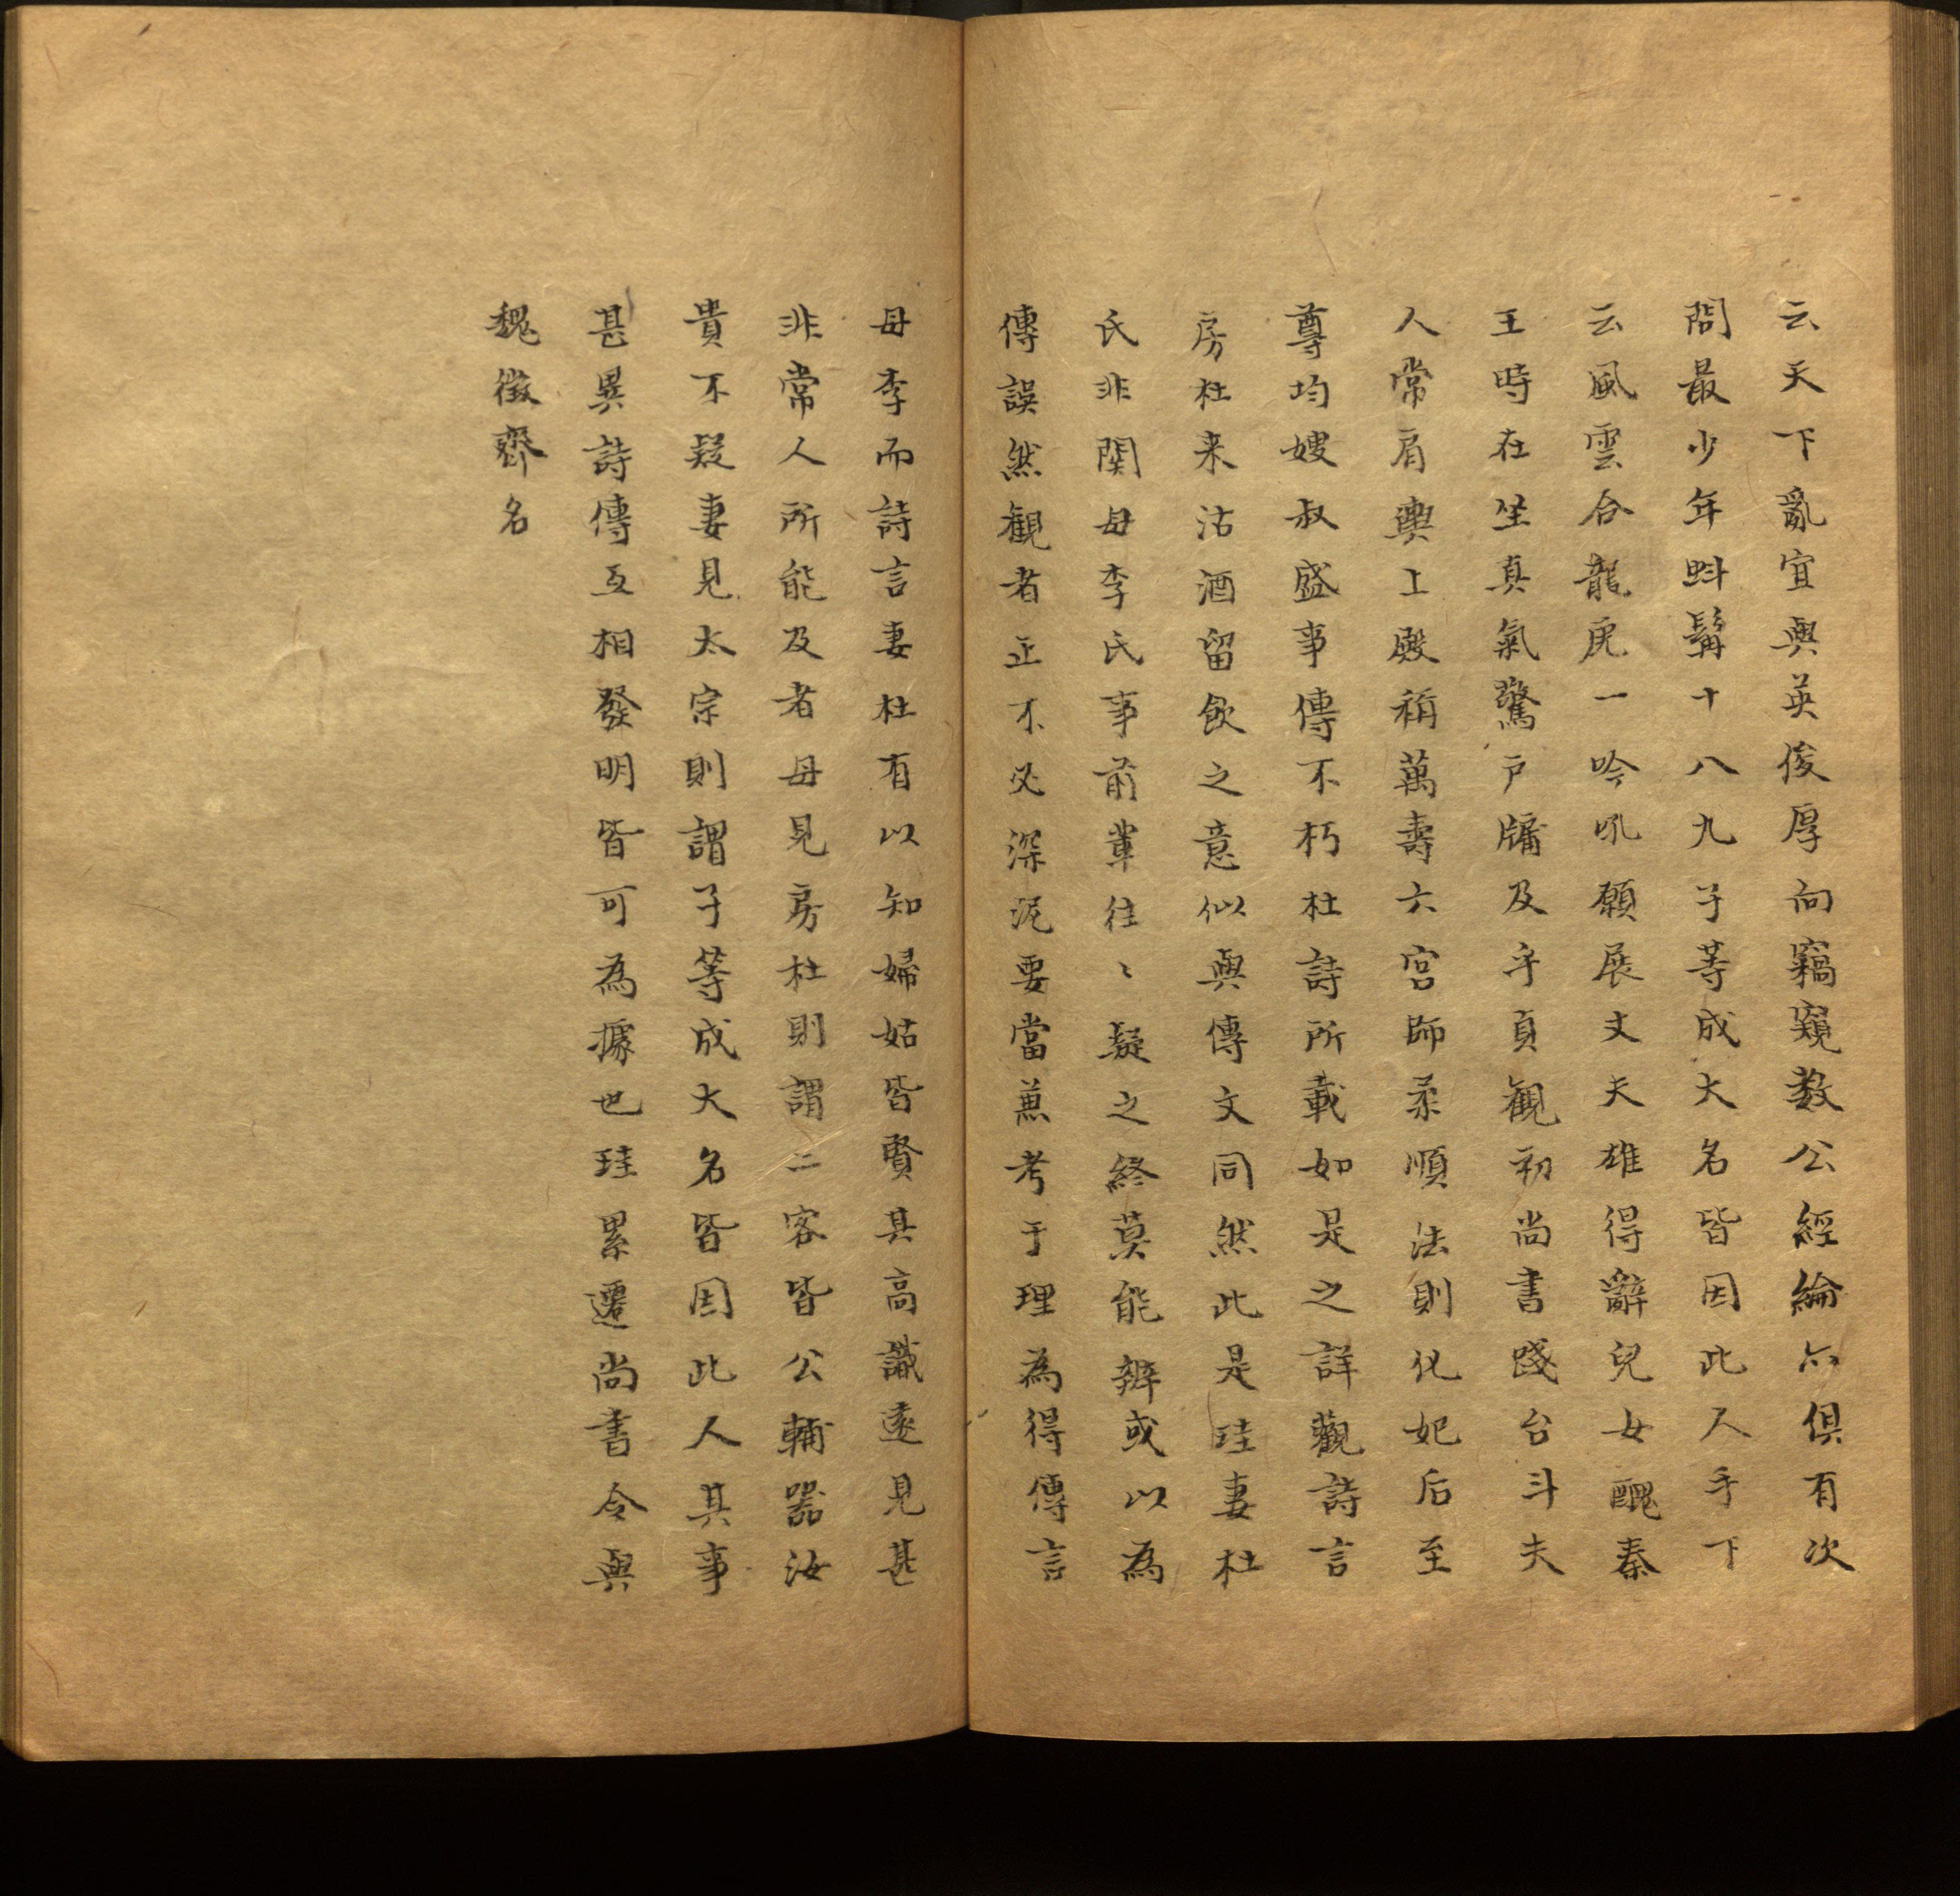 云天下亂宜與英俊厚向竊窺数公經綸亦俱有次
問最少年虯髯十八九子等成大名皆因此人手下
云風雲合龍虎一吟吼願展丈夫雄得辭兒女醜秦
王時在坐真氣驚戸牖及乎貞觀初尚書踐台斗夫
人常肩輿上殿稱萬壽六宮師柔順法則化妃后至
尊均嫂叔盛事傳不朽杜詩所載如是之詳觀詩言
房杜来沽酒留飲之意似與傳文同然此是珪妻杜
氏非関母李氏事前輩往〻疑之終莫能辨或以為
傳誤然觀者正不必深泥要當兼考于理為得傳言
母李而詩言妻杜有以知婦姑皆賢其高識遠見甚
非常人所能及者母見房杜則謂二客皆公輔器汝
貴不疑妻見太宗則謂子等成大名皆因此人其事
甚異詩傳互相發明皆可為據也珪累遷尚書令與
魏徵齊名